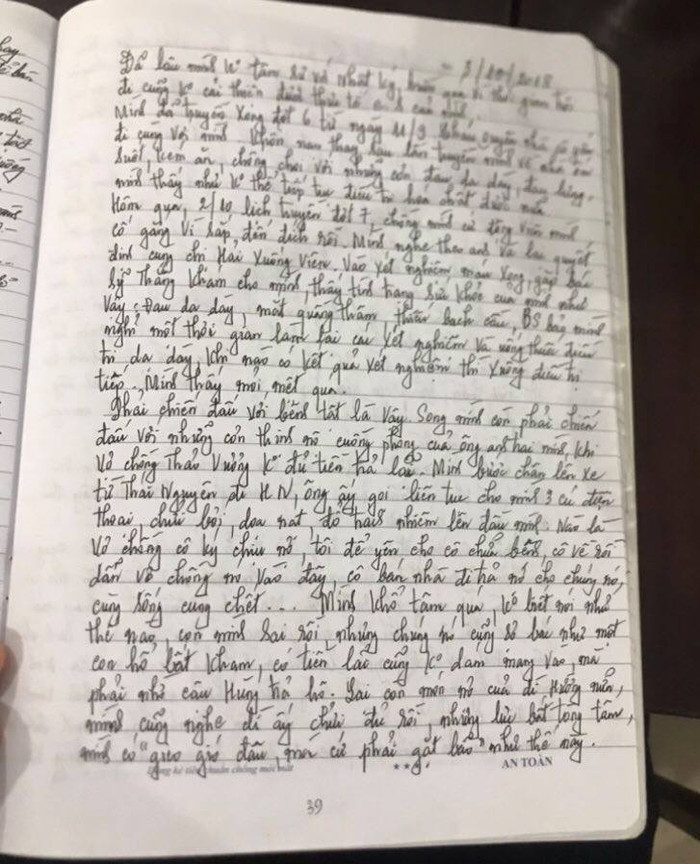 - 3/10/2018
Đã lâu mình k° tâm sự với nhật ký, trôi qua vì thời gian
đi cũng k° cải thiện được
Mình đã truyền xong đợt 6 từ ngày 11/9
đi cùng với mình
suốt, kém ăn, chống chọi với những cơn đau dạ dày, đau lưng,
mình thấy như k° thể tiếp tục điều trị hóa chất được nữa.
Hôm qua, 2/10 lịch truyền đợt 7, chồng mình cứ động viên mình
cố gắng vì sắp đến đích rồi. Mình nghe theo anh và lại quyết
định cùng chị Hai xuống Viện. Vào xét nghiệm máu xong, gặp bác
sỹ Thắng khám cho mình, thấy tình trạng sức khỏe của mình như
vậy: Đau dạ dày, mắt quầng thâm, thiếu bạch cầu, BS bảo mình
nghỉ một thời gian làm lại các xét nghiệm và uống thuốc điều
trị dạ dày, khi nào có kết quả xét nghiệm thì xuống điều trị
tiếp. Mình thấy mỏi mệt quá.
Phải chiến đấu với bệnh tật là vậy. Song mình còn phải chiến
đấu với những cơn thịnh nộ cuồng phong của ông anh hai mình, khi
vợ chồng Thảo Vương k° đủ tiền trả lãi. Mình bước chân lên xe
từ Thái Nguyên đi HN, ông ấy gọi liên tục cho mình 3 cú điện
thoại, chửi bới, dọa nạt đổ trách nhiệm lên đầu mình. Nào là
vợ chồng cô ký chịu nợ, tôi để yên cho cô chữa bệnh, cô về rồi
dẫn vợ chồng nó vào đây, cô bán nhà đi trả nợ cho chúng nó,
cùng sống cùng chết... Mình khổ tâm quá, k° biết nói như
thế nào, con mình sai rồi, nhưng chúng nó cũng sợ bác như một
con hổ bất kham, có tiền lãi cũng k° dám mang vào, mà
phải nhờ cậu Hùng trả hộ. Lại còn món nợ của dì Hường nữa,
mình cũng nghe dì ấy chửi đủ rồi, nhiều lúc bất lòng tâm,
mình có "gieo gió đâu, mà cứ phải gặt bão" như thế này.
AN TOÀN
39